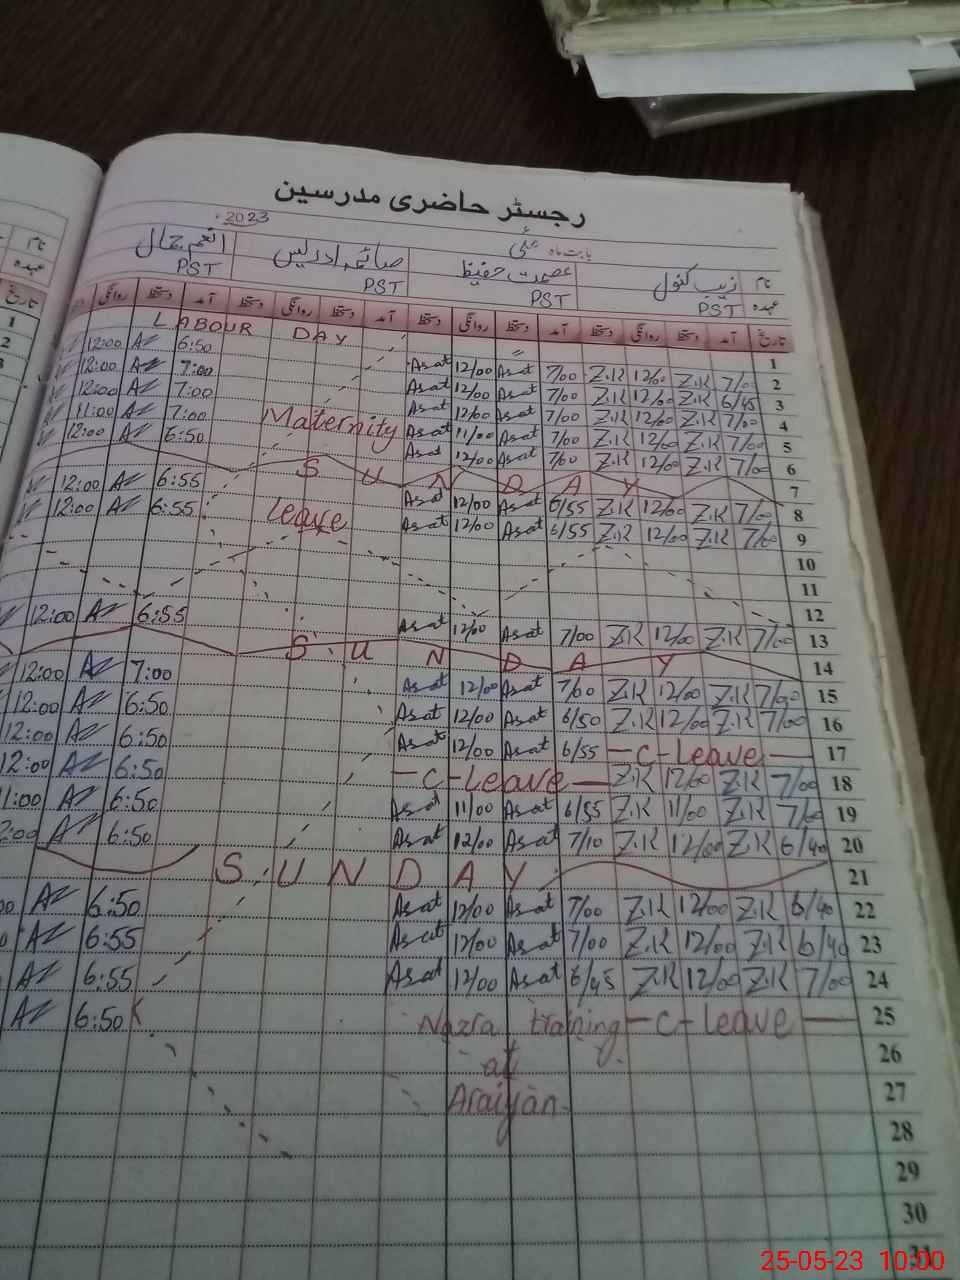 رجسٹر حاضری مدرسین
بابت ماہ مئی 2023
نام زیب کنول عصمت حفیظ صائمہ ادریس انعم جمال
عہدہ PST PST PST PST
تاریخ آمد دستخط روانگی دستخط آمد دستخط روانگی دستخط آمد دستخط روانگی دستخط آمد دستخط روانگی
LABOUR DAY 1
12:00 AZ 6:50 Asat 12/00 Asat 7/00 Z.K 12/00 Z.K 7/00 2
12:00 AZ 7:00 Asat 12/00 Asat 7/00 Z.K 12/00 Z.K 6/45 3
12:00 AZ 7:00 Asat 12/00 Asat 7/00 Z.K 12/00 Z.K 7/00 4
11:00 AZ 7:00 Maternity Asat 11/00 Asat 7/00 Z.K 12/00 Z.K 7/00 5
12:00 AZ 6:50 Asat 12/00 Asat 7/00 Z.K 12/00 Z.K 7/00 6
SUNDAY 7
12:00 AZ 6:55 Asat 12/00 Asat 6/55 Z.K 12/00 Z.K 7/00 8
12:00 AZ 6:55 Leave Asat 12/00 Asat 6/55 Z.K 12/00 Z.K 7/00 9
10
11
12
12:00 AZ 6:55 Asat 12/00 Asat 7/00 Z.K 12/00 Z.K 7/00 13
SUNDAY 14
12:00 AZ 7:00 Asat 12/00 Asat 7/00 Z.K 12/00 Z.K 7/00 15
12:00 AZ 6:50 Asat 12/00 Asat 6/50 Z.K 12/00 Z.K 7/00 16
12:00 AZ 6:50 Asat 12/00 Asat 6/55 – C-Leave – 17
12:00 AZ 6:50 – C-Leave – Z.K 12/00 Z.K 7/00 18
11:00 AZ 6:50 Asat 11/00 Asat 6/55 Z.K 11/00 Z.K 7/00 19
2:00 AZ 6:50 Asat 12/00 Asat 7/10 Z.K 12/00 Z.K 6/40 20
SUNDAY 21
00 AZ 6:50 Asat 12/00 Asat 7/00 Z.K 12/00 Z.K 6/40 22
0 AZ 6:55 Asat 12/00 Asat 7/00 Z.K 12/00 Z.K 6/40 23
AZ 6:55 Asat 12/00 Asat 6/45 Z.K 12/00 Z.K 7/00 24
AZ 6:50 Nazra training – C-Leave – 25
at 26
Araiyan 27
28
29
30
31
نام
عہدہ
تاریخ
1
2
3
25-05-23 10:00